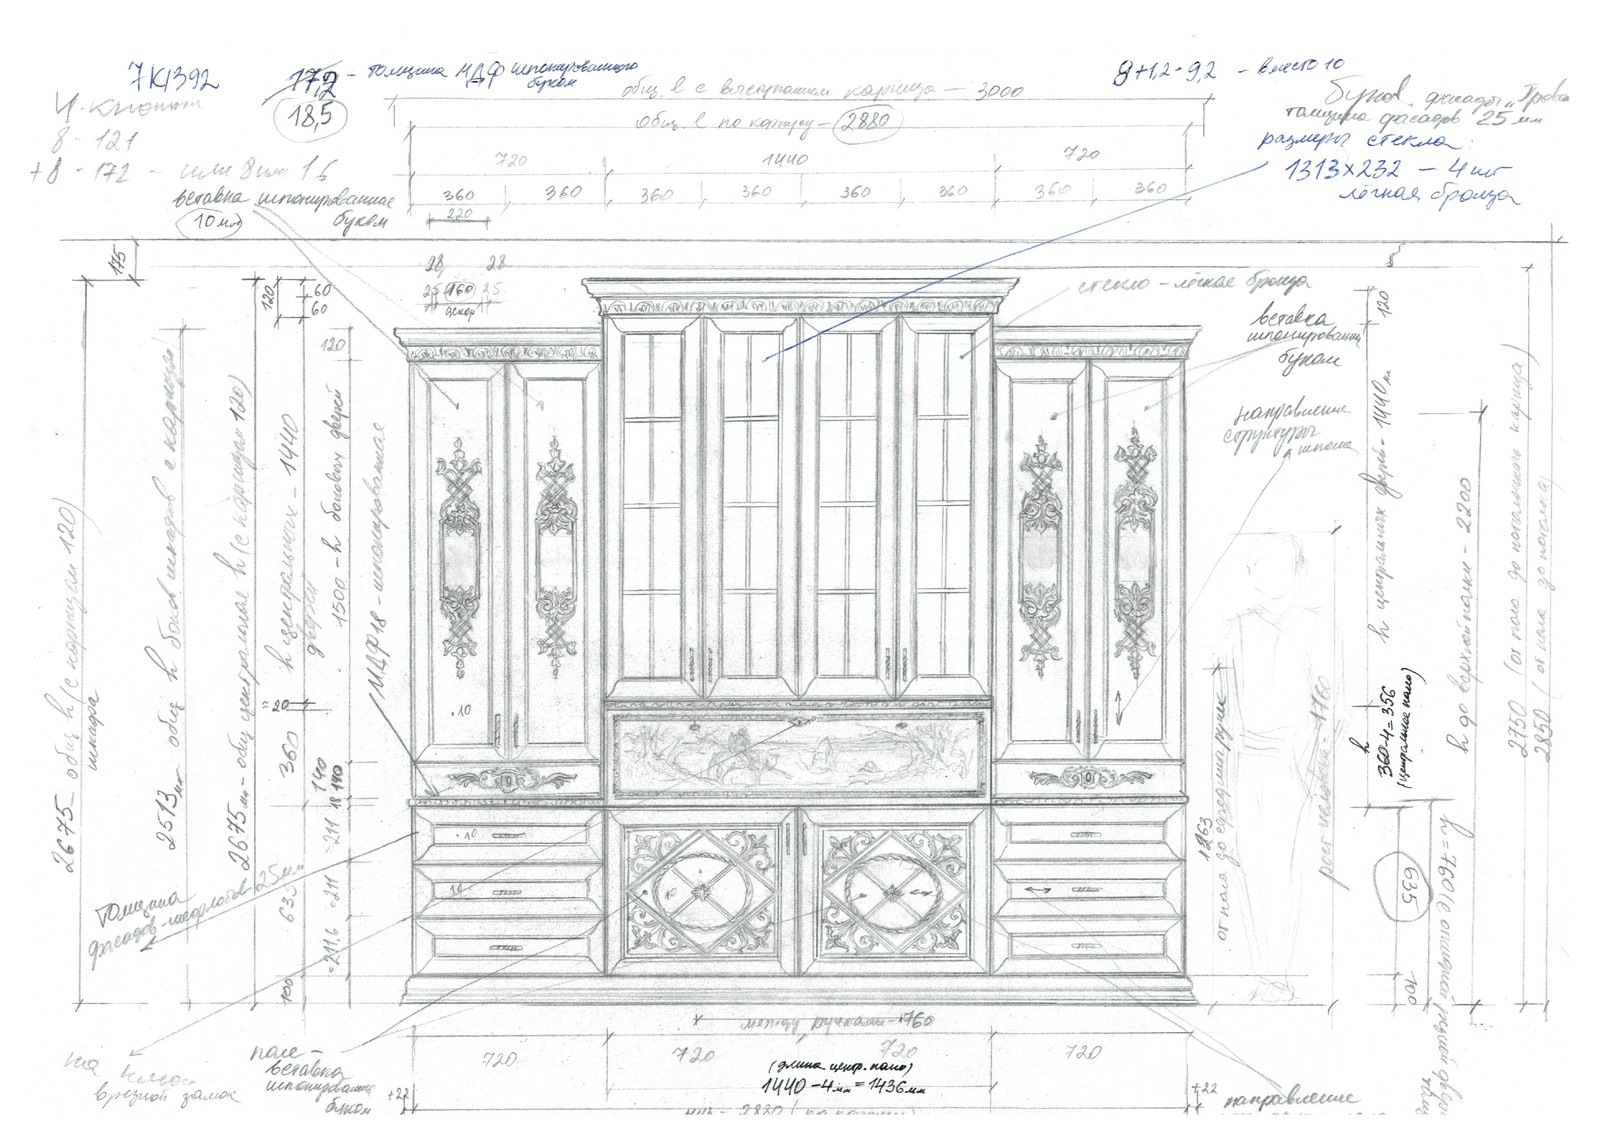 7К1392
17,2 - толщина МДФ шпонированного
буком
18,5
8+1,2=9,2 - вместо 10
общ. l с выступанием карниза - 3000
общ. l по корпусу - 2880
8 - 121
+8 - 172 - или 8 или 16
толщина фасадов 25 мм
размеры стекла:
1313х232 - 4 шт
лёгкая бронза
720
1440
720
360
360
360
360
360
360
360
360
220
вставка шпонированная
буком
10 мм
175
28
28
25
160
25
декор
120
60
60
120
стекло - лёгкая бронза
вставка
шпонированная
буком
120
направление
структуры
шпона
2675 - общ h (с карнизом 120)
шкафа
2513 мм общ h боков шкафов с карнизом
2675 мм - общ центральное h (с карнизом 120)
h центральных - 1440
дверей
1500 - h боковых дверей
МДФ 18 - шпонированная
20
360
140
18 140
211
211
211.6
635
100
.10
.10
10
10
h центральных дверей - 1440 м
h
360-4=356
(центральное пано)
h до верхней полки - 2200
2750 (от пола до потолочного карниза)
2850 (от пола до потолка)
1263
от пола до середины ручек
рост человека - 1760
635
100
толщина
фасадов-шуфлядов 25 мм
между ручками - 760
720
720
720
720
(длина центр. пано)
1440-4мм=1436мм
+22
+22
2880 (по карнизу)
врезной замок
поле -
вставка
шпонированная
буком
направление